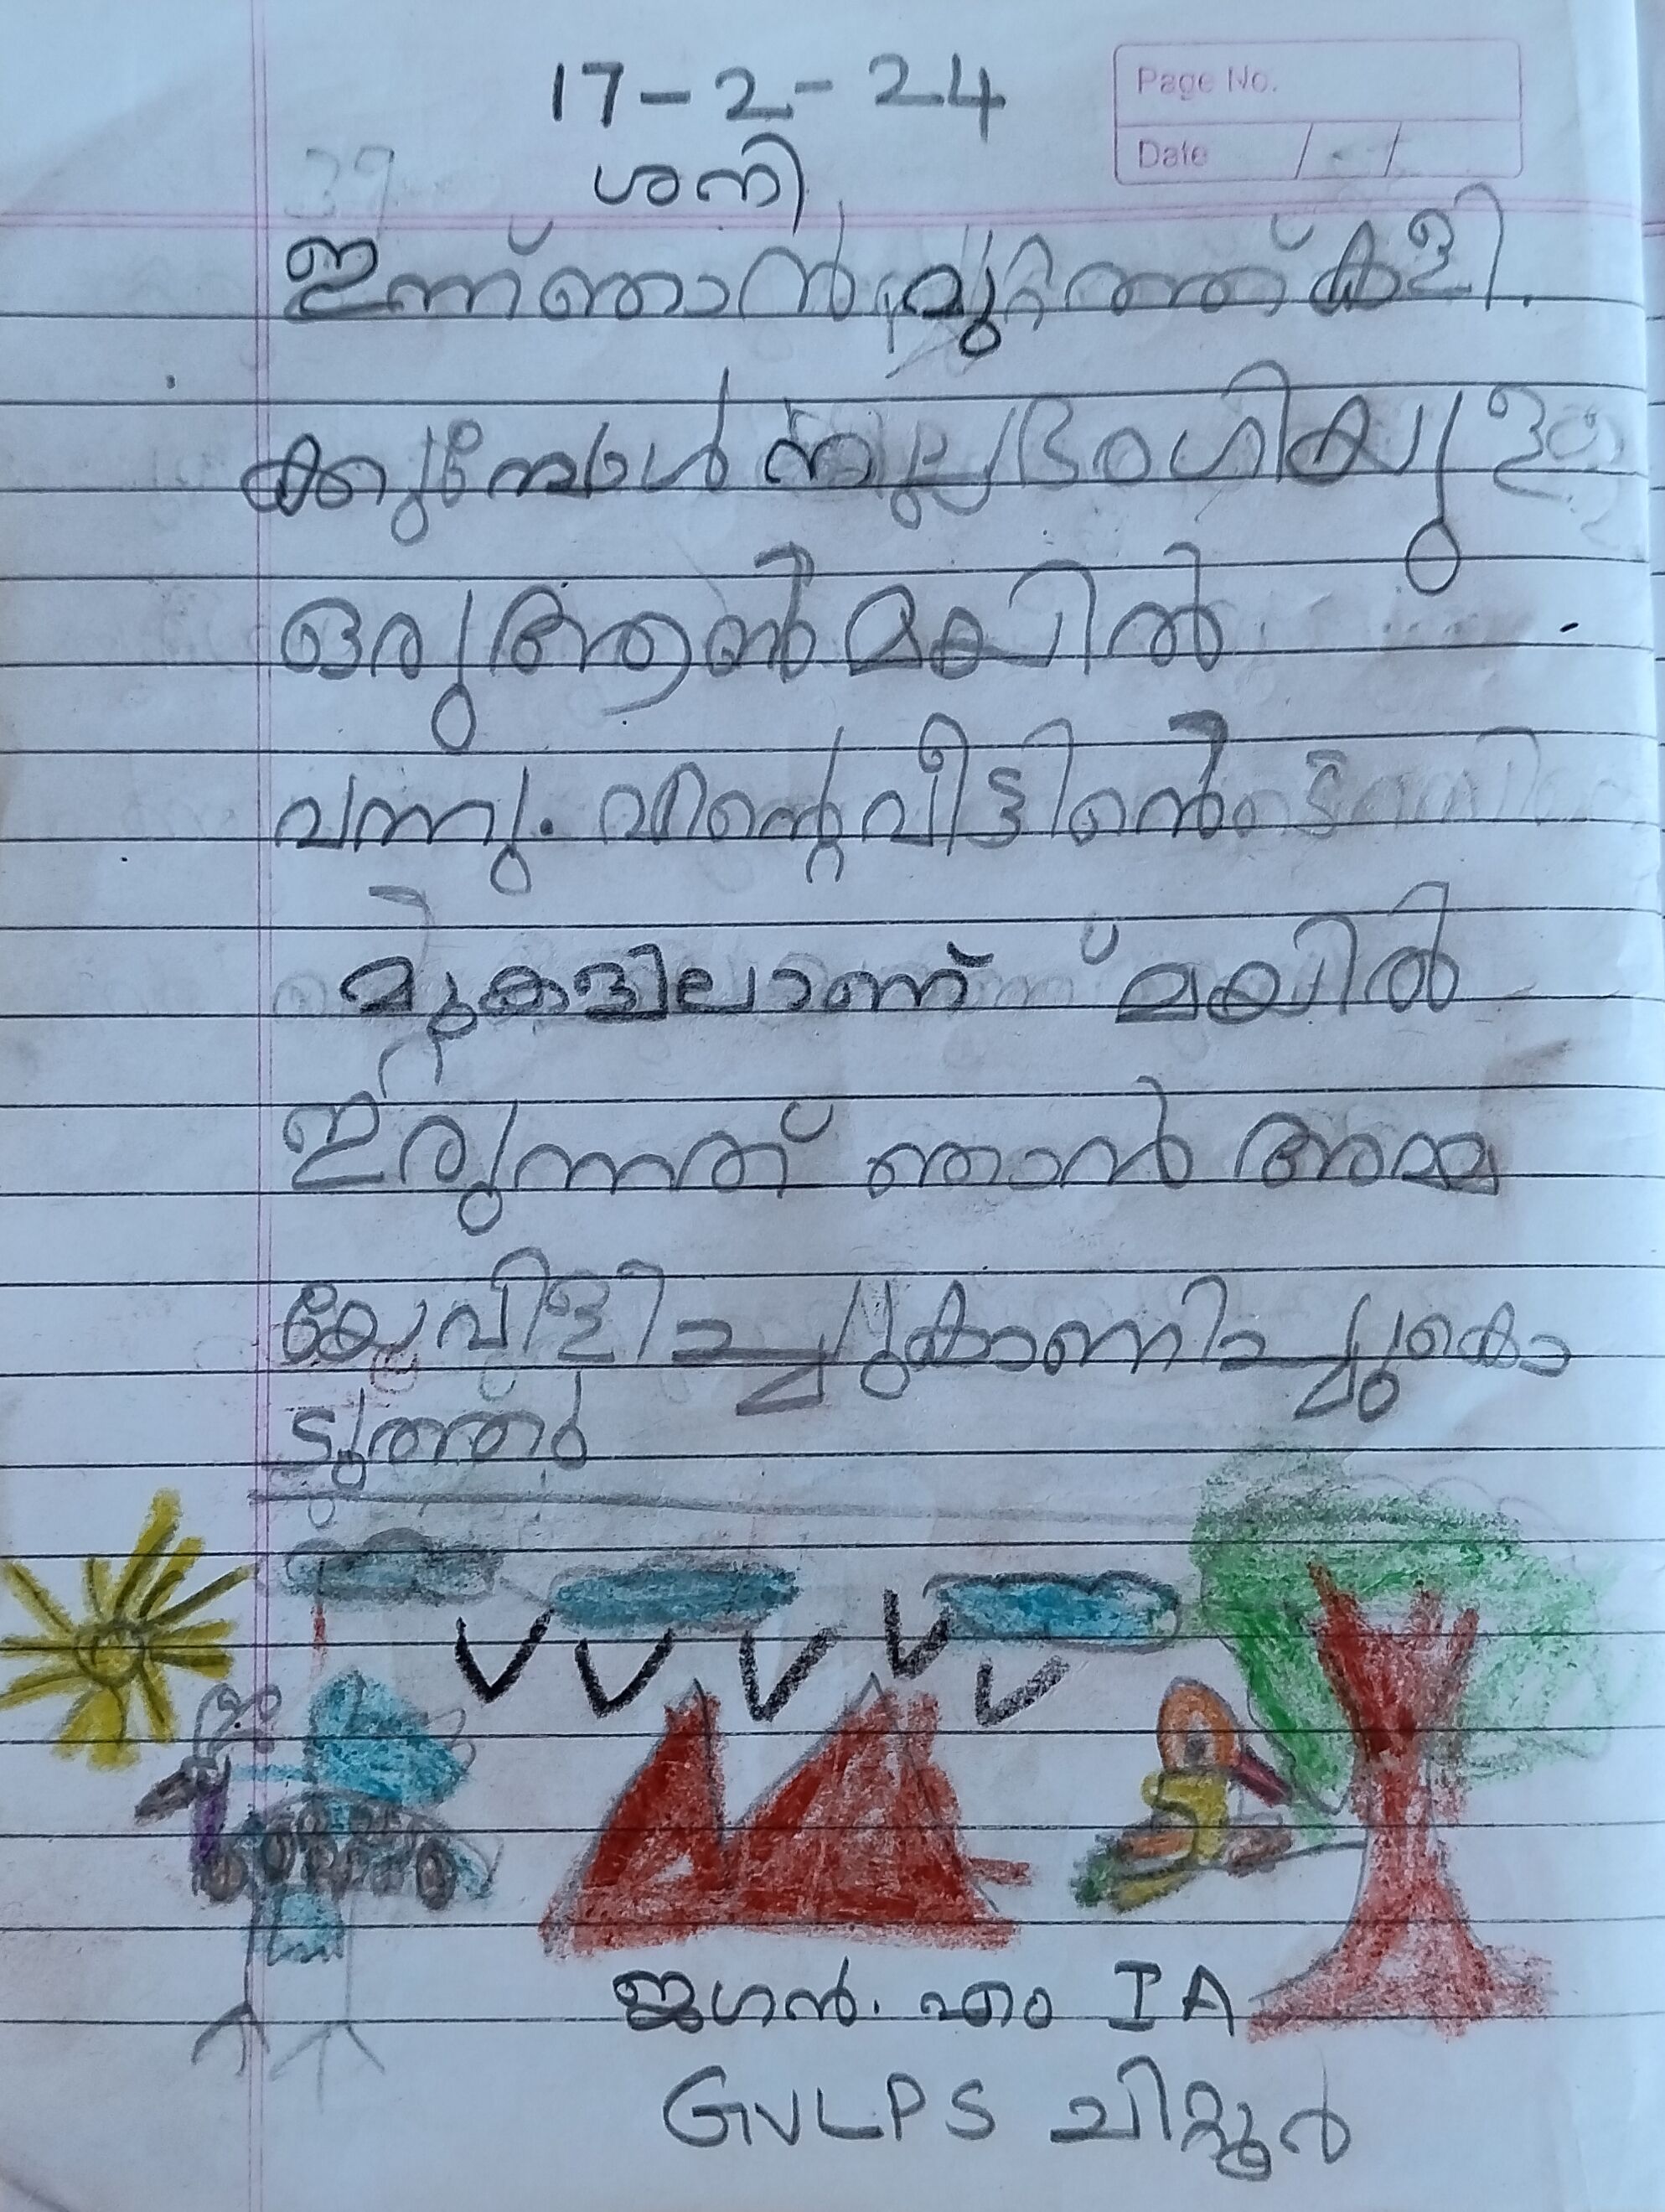 17-2-24
Page No.
Date / /
ശനി
ഇന്ന് ഞാൻ മുറ്റത്ത് കളി.
ക്കുമ്പോൾ നല്ല ഭംഗിയു
ഒരു ആൺ മയിൽ
വന്നു. എൻ്റെ വീട്ടിൻ്റെ
മുകളിലാണ് മയിൽ
ഇരുന്നത് ഞാൻ അമ്മ
യേ വിളിച്ചു കാണിച്ചു കൊ
ടുത്തു
ജഗൻ. എം I A
GVLPS ചിറ്റൂർ